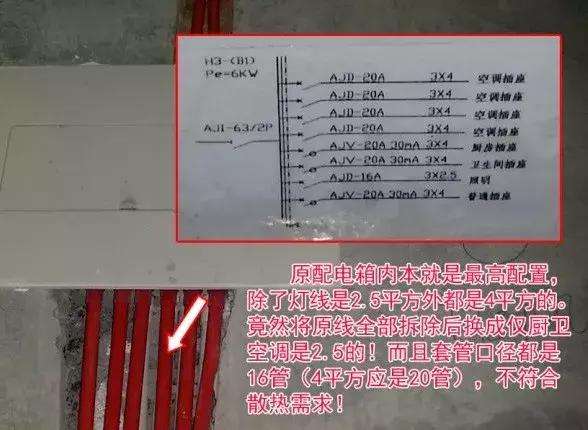 H3-(B1)
Pe=6KW
AJ11-63/2P
AJD-20A 3X4 空调插座
AJD-20A 3X4 空调插座
AJD-20A 3X4 空调插座
AJD-20A 3X4 空调插座
AJV-20A 30mA 3X4 厨房插座
AJV-20A 30mA 3X4 卫生间插座
AJD-16A 3X2.5 照明
AJV-20A 30mA 3X4 普通插座
原配电箱内本就是最高配置，
除了灯线是2.5平方外都是4平方的。
竟然将原线全部拆除后换成仅厨卫
空调是2.5的！而且套管口径都是
16管（4平方应是20管），不符合
散热需求！